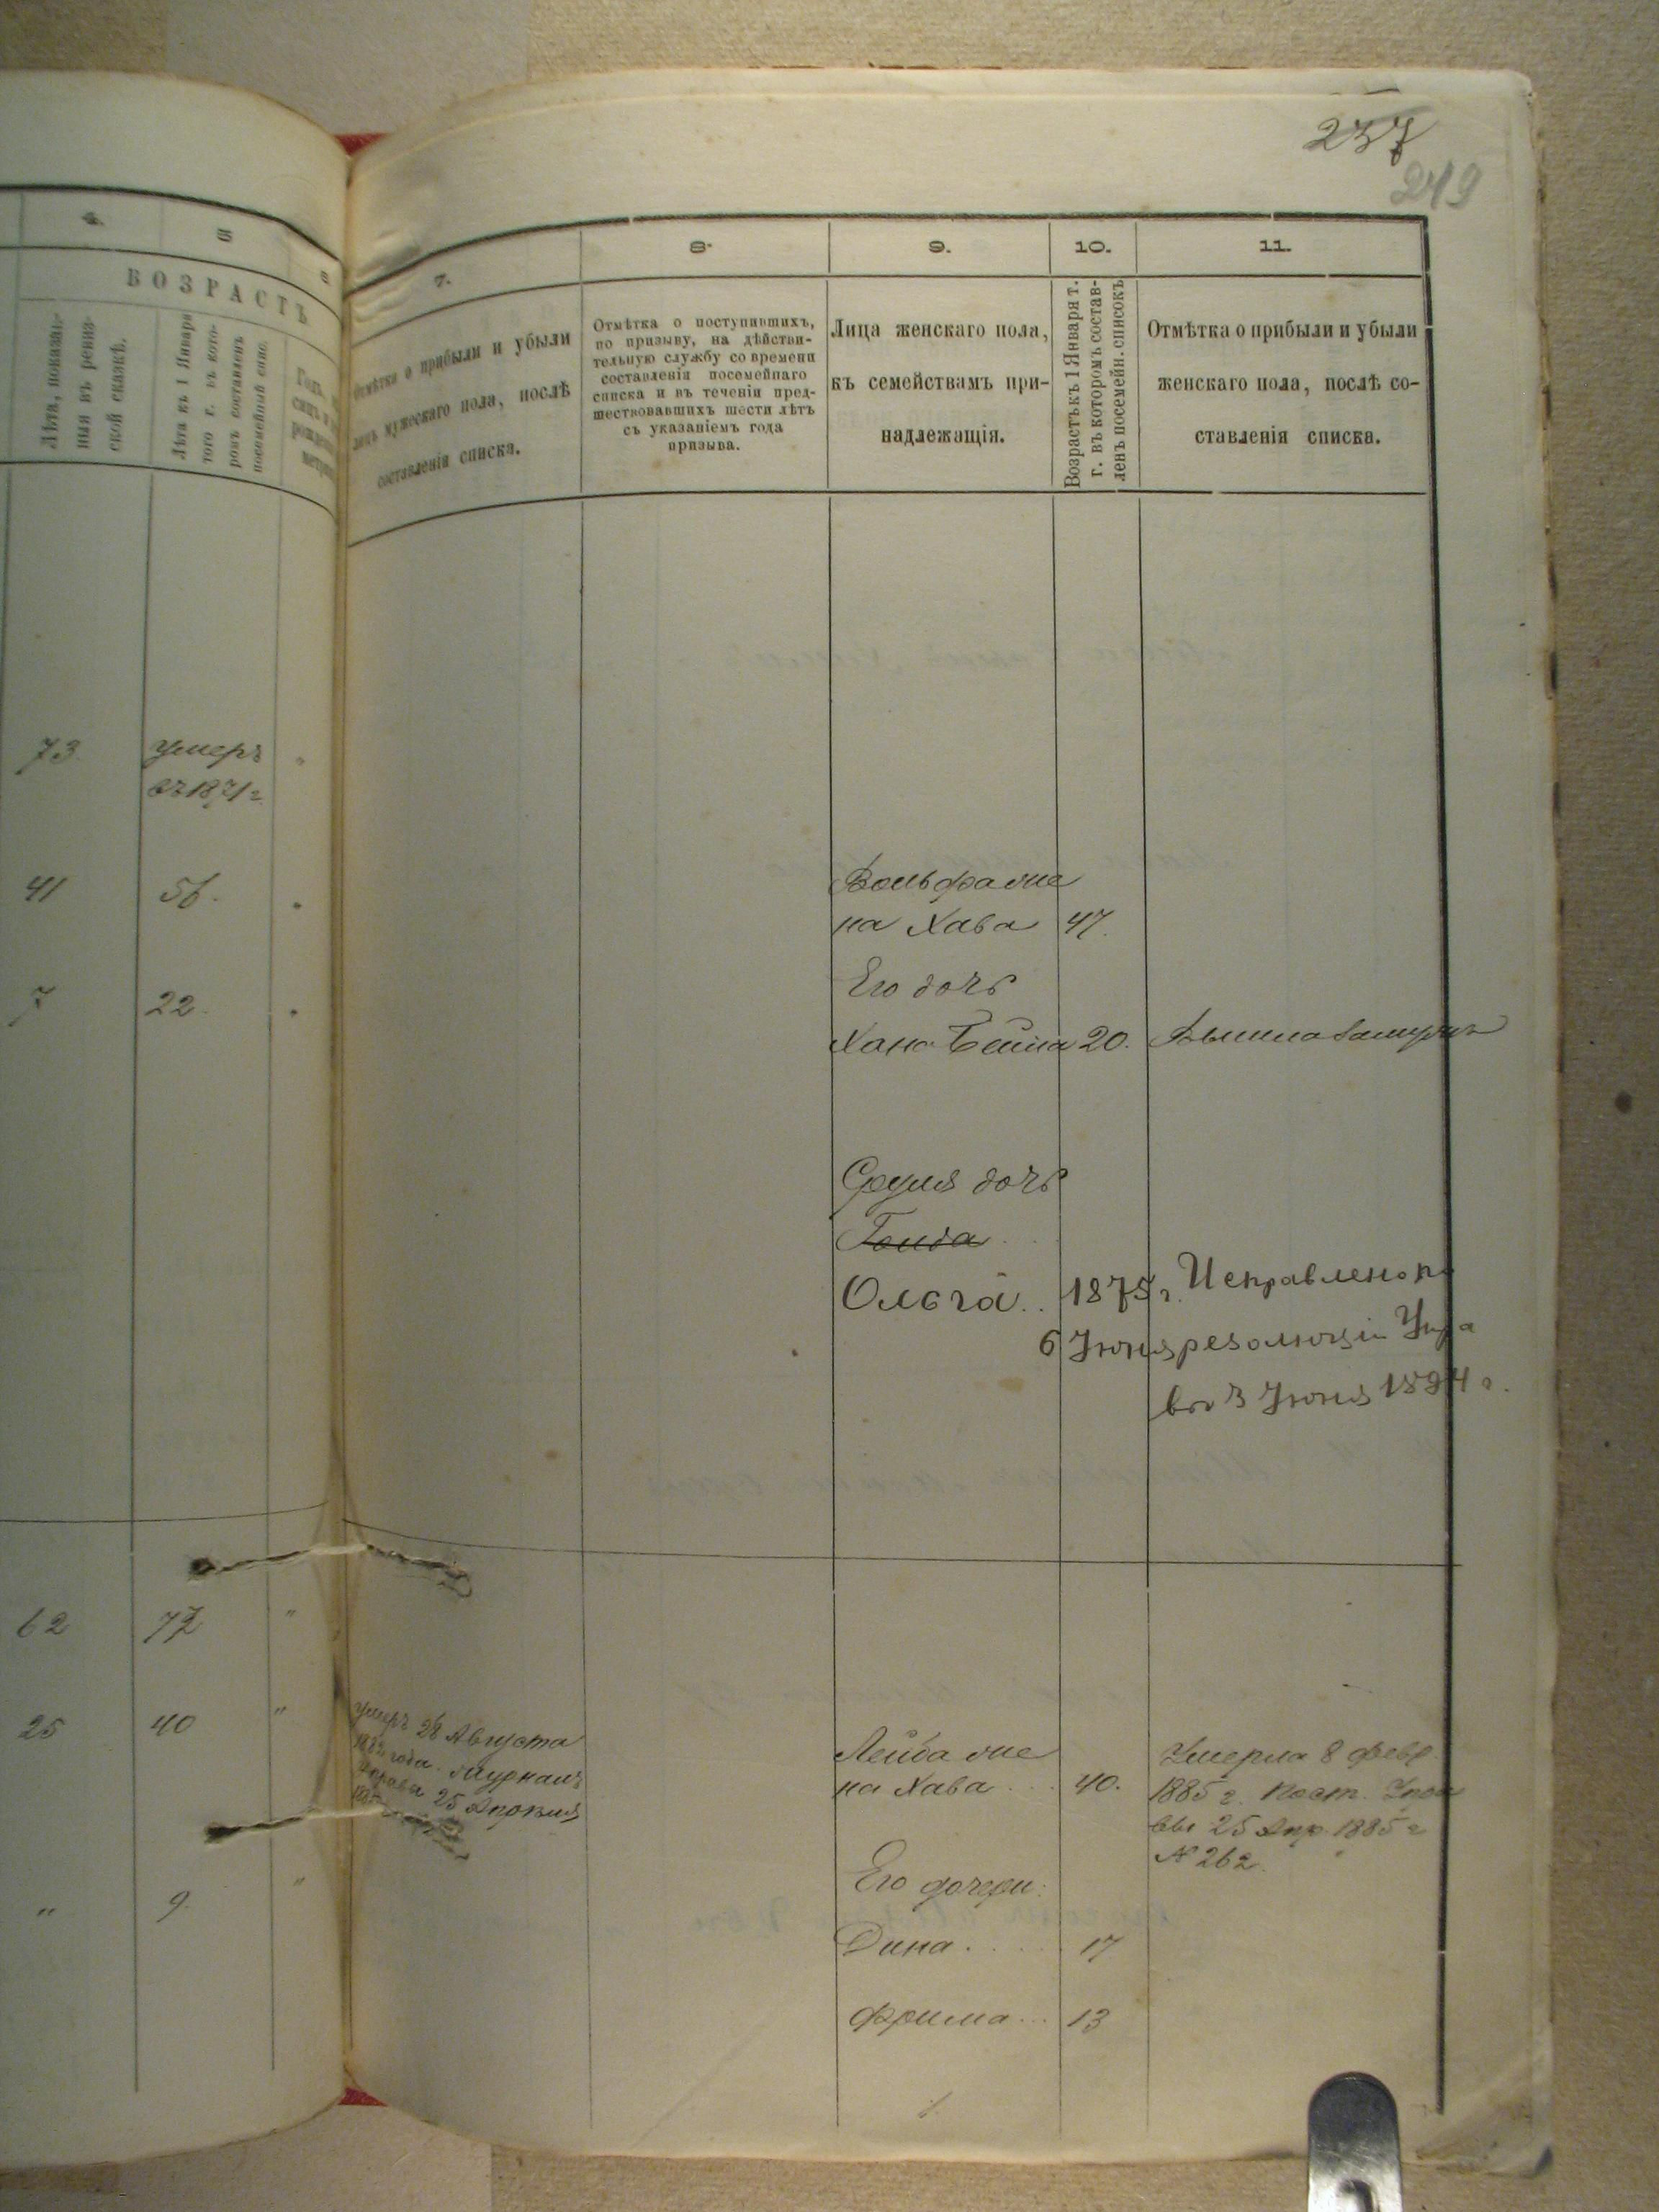 237
249
4.
5
6
ВОЗРАСТЪ
Лѣта, показан-
ныя въ ревиз-
ской сказкѣ.
Лѣта къ 1 Января
того г. въ кото-
ромъ составленъ
посемейный спис.
7.
Отмѣтка о прибыли и убыли
лицъ мужескаго пола, послѣ
составленія списка.
8.
Отмѣтка о поступившихъ,
по призыву, на дѣйстви-
тельную службу со времени
составленія посемейнаго
списка и въ теченіи пред-
шествовавшихъ шести лѣтъ
съ указаніемъ года
призыва.
9.
Лица женскаго пола,
къ семействамъ при-
надлежащія.
10.
Возрастъ къ 1 Января т.
г. въ которомъ состав-
ленъ посемейн. списокъ
11.
Отмѣтка о прибыли и убыли
женскаго пола, послѣ со-
ставленія списка.
73 умеръ
въ 1871 г.
41 56.
Вольфа же
на Хава 47.
7 22.
Его дочь
Хана Бейла 20. Вышла замужъ
Сруля дочь
Голда
Ольга.. 1875 г. Исправлено по
6 Июня резолюціи Упра
вы 3 Июня 1894 г.
62 72 "
25 40 "
умеръ 28 Августа
года. журналъ
Управы 25 Апрѣля
Лейба же
на Хава ... 40.
Умерла 8 февр.
1885 г. Пост. Упра
вы 25 Апр. 1885 г
№ 262.
" 9. "
Его дочери:
Дина..... 17
Фрима... 13